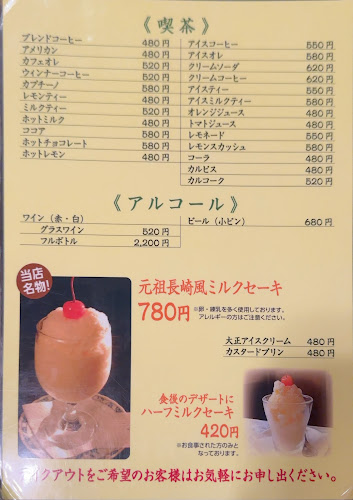 《 喫茶 》
ブレンドコーヒー 480円
アメリカン 480円
カフェオレ 520円
ウィンナーコーヒー 520円
カプチーノ 580円
レモンティー 480円
ミルクティー 520円
ホットミルク 480円
ココア 580円
ホットチョコレート 580円
ホットレモン 480円
アイスコーヒー 550円
アイスオレ 580円
クリームソーダ 620円
クリームコーヒー 620円
アイスティー 550円
アイスミルクティー 580円
オレンジジュース 480円
トマトジュース 480円
レモネード 550円
レモンスカッシュ 580円
コーラ 480円
カルピス 480円
カルコーク 520円
《 アルコール 》
ワイン（赤・白）
グラスワイン 520円
フルボトル 2,200円
ビール（小ビン） 680円
当店
名物!
元祖長崎風ミルクセーキ
780円
※卵・練乳を多く使用しております。
アレルギーの方はご注意ください。
大正アイスクリーム 480円
カスタードプリン 480円
食後のデザートに
ハーフミルクセーキ
420円
※お食事された方のみと
なっております。
クアウトをご希望のお客様はお気軽にお申し出ください。